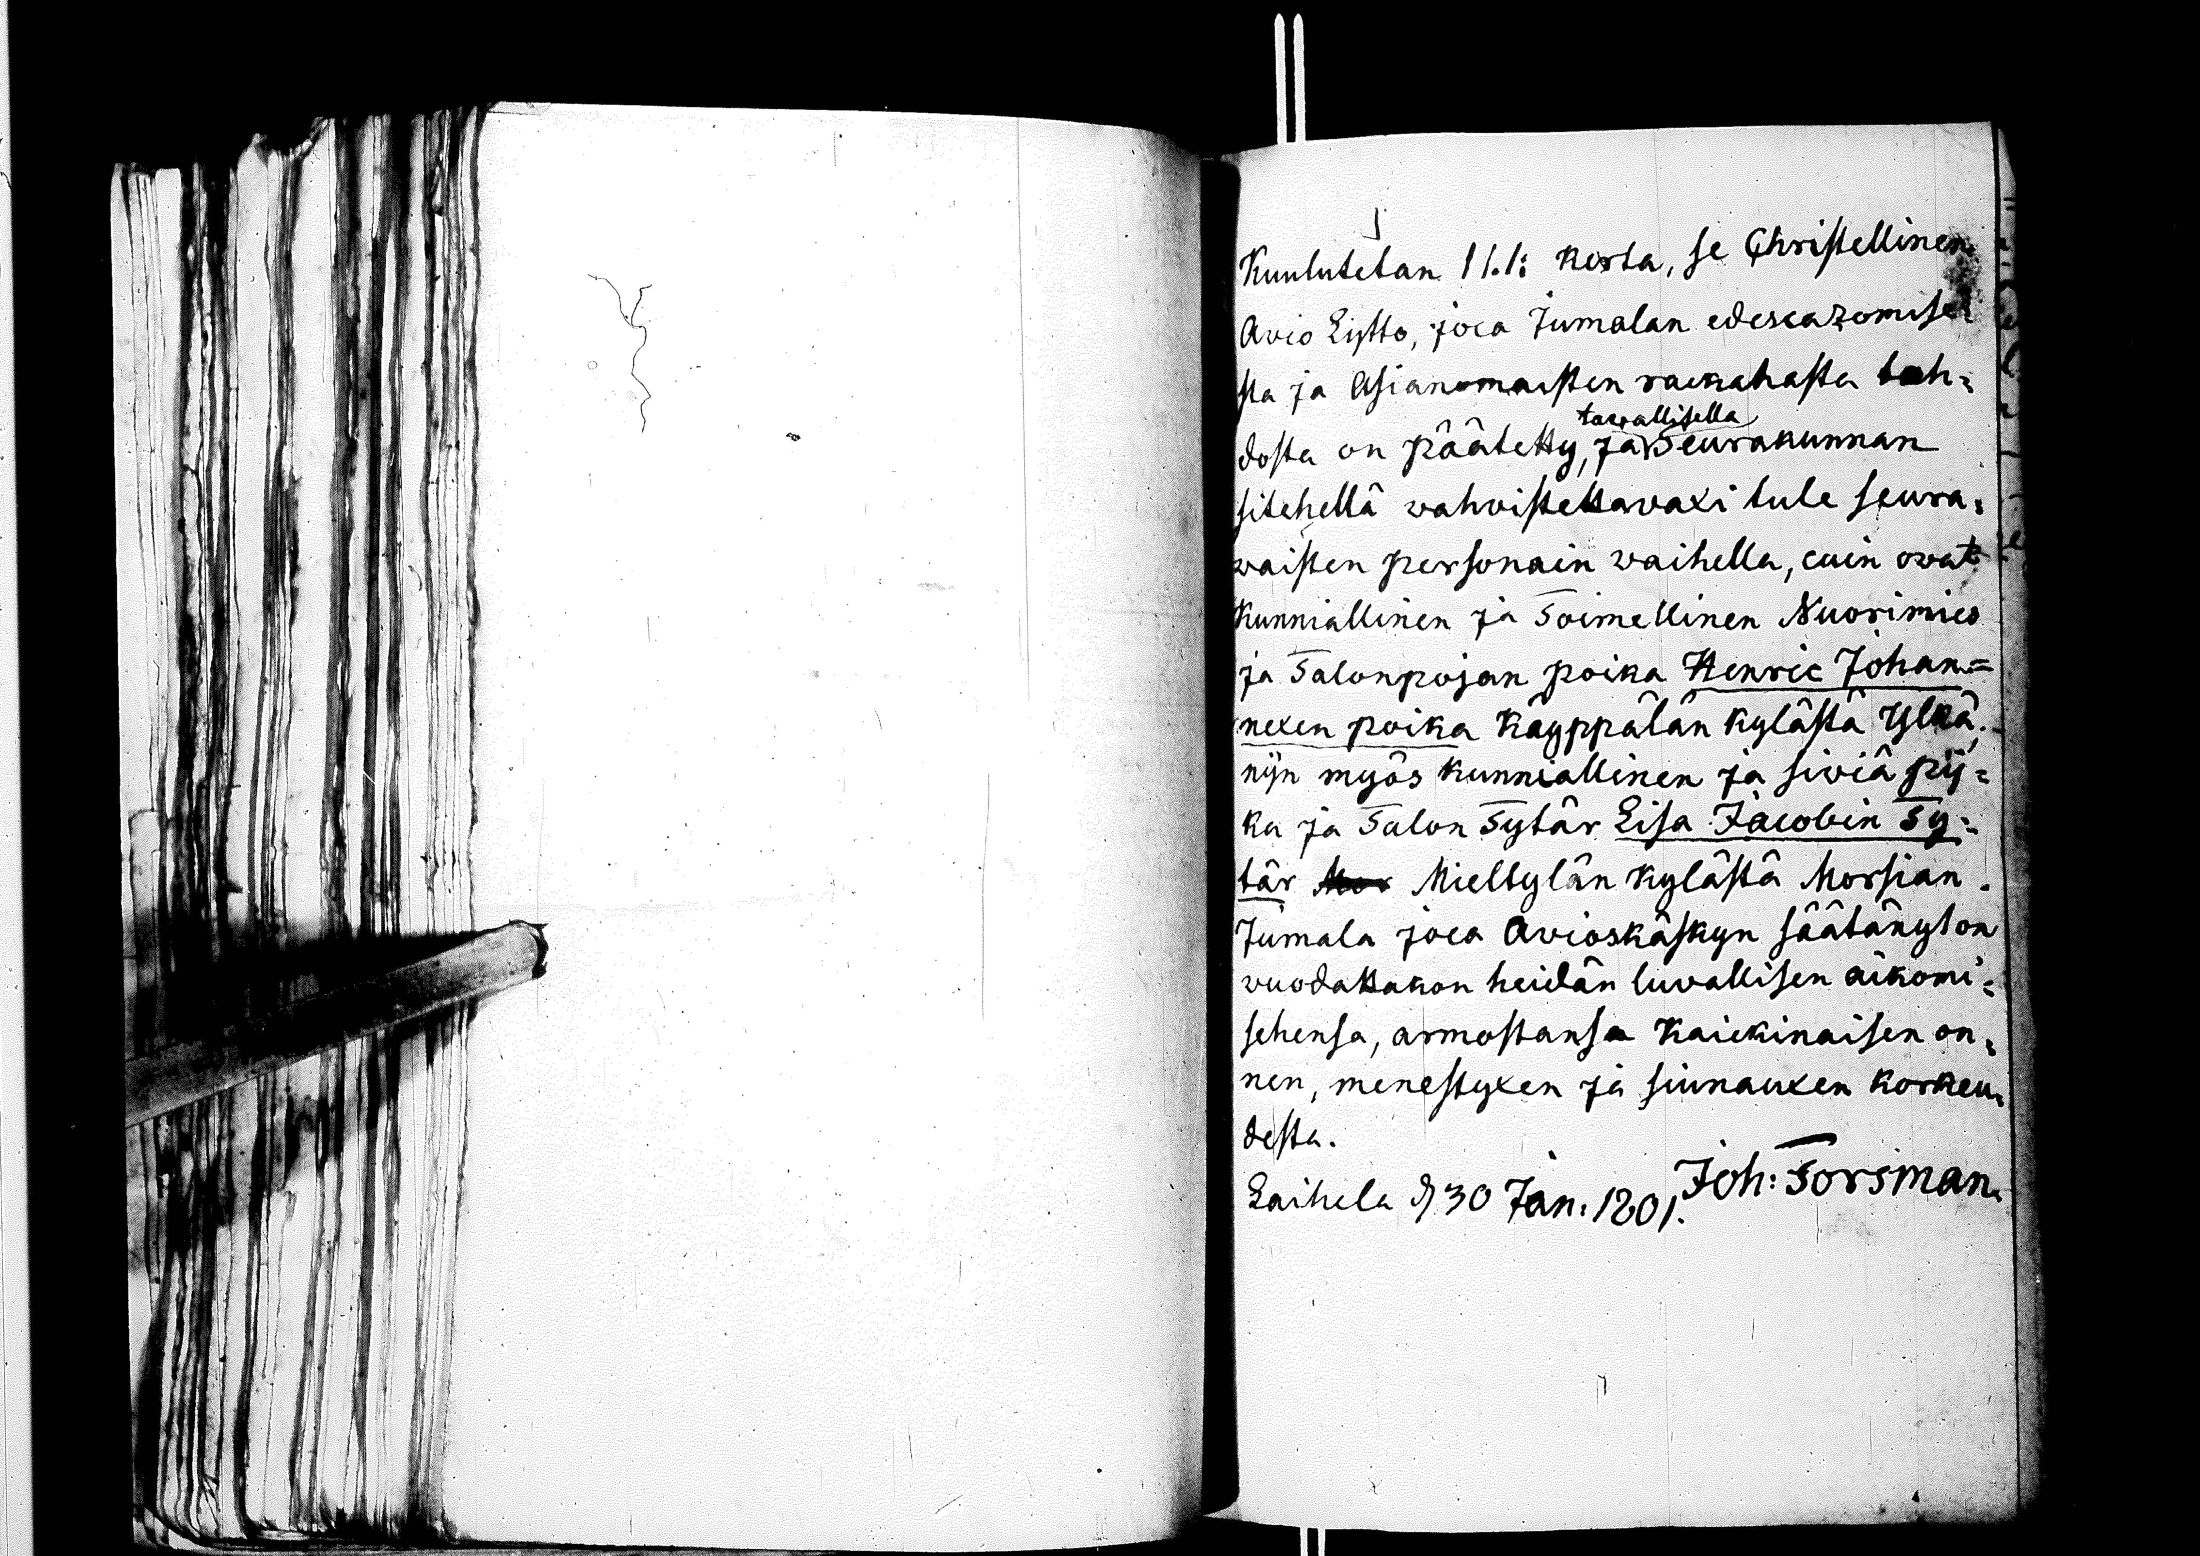 Kuulutetan 1 1.1: kerta, se Christellinen
Avio Lijtto, joca Jumalan edescazomise-
sta ja Asianomaisten rackahasta tah-
dosta on päätetty, ja tavallisella Seurakunnan
sitehellä vahvistettavaxi tule seura-
vaisten personain vaihella, cuin ovat
Kunniallinen ja Toimellinen Nuorimies
ja Talonpojan poika Henric Johan=
nexen poika Käyppälän kylästä Ylkä.
nijn myös kunniallinen ja siviä pij-
ka ja Talon Tytär Lisa Jacobin Ty-
tär Mieltylän kylästä Morsian.
Jumala joca Avioskäskyn säätänyt on
vuodattakon heidän luvallisen aikomi-
sehensa, armostansa kaickinaisen on-
nen, menestyxen ja siunauxen korkeu-
desta.
Laihela d 30 Jan. 1801. Joh: Forsman.